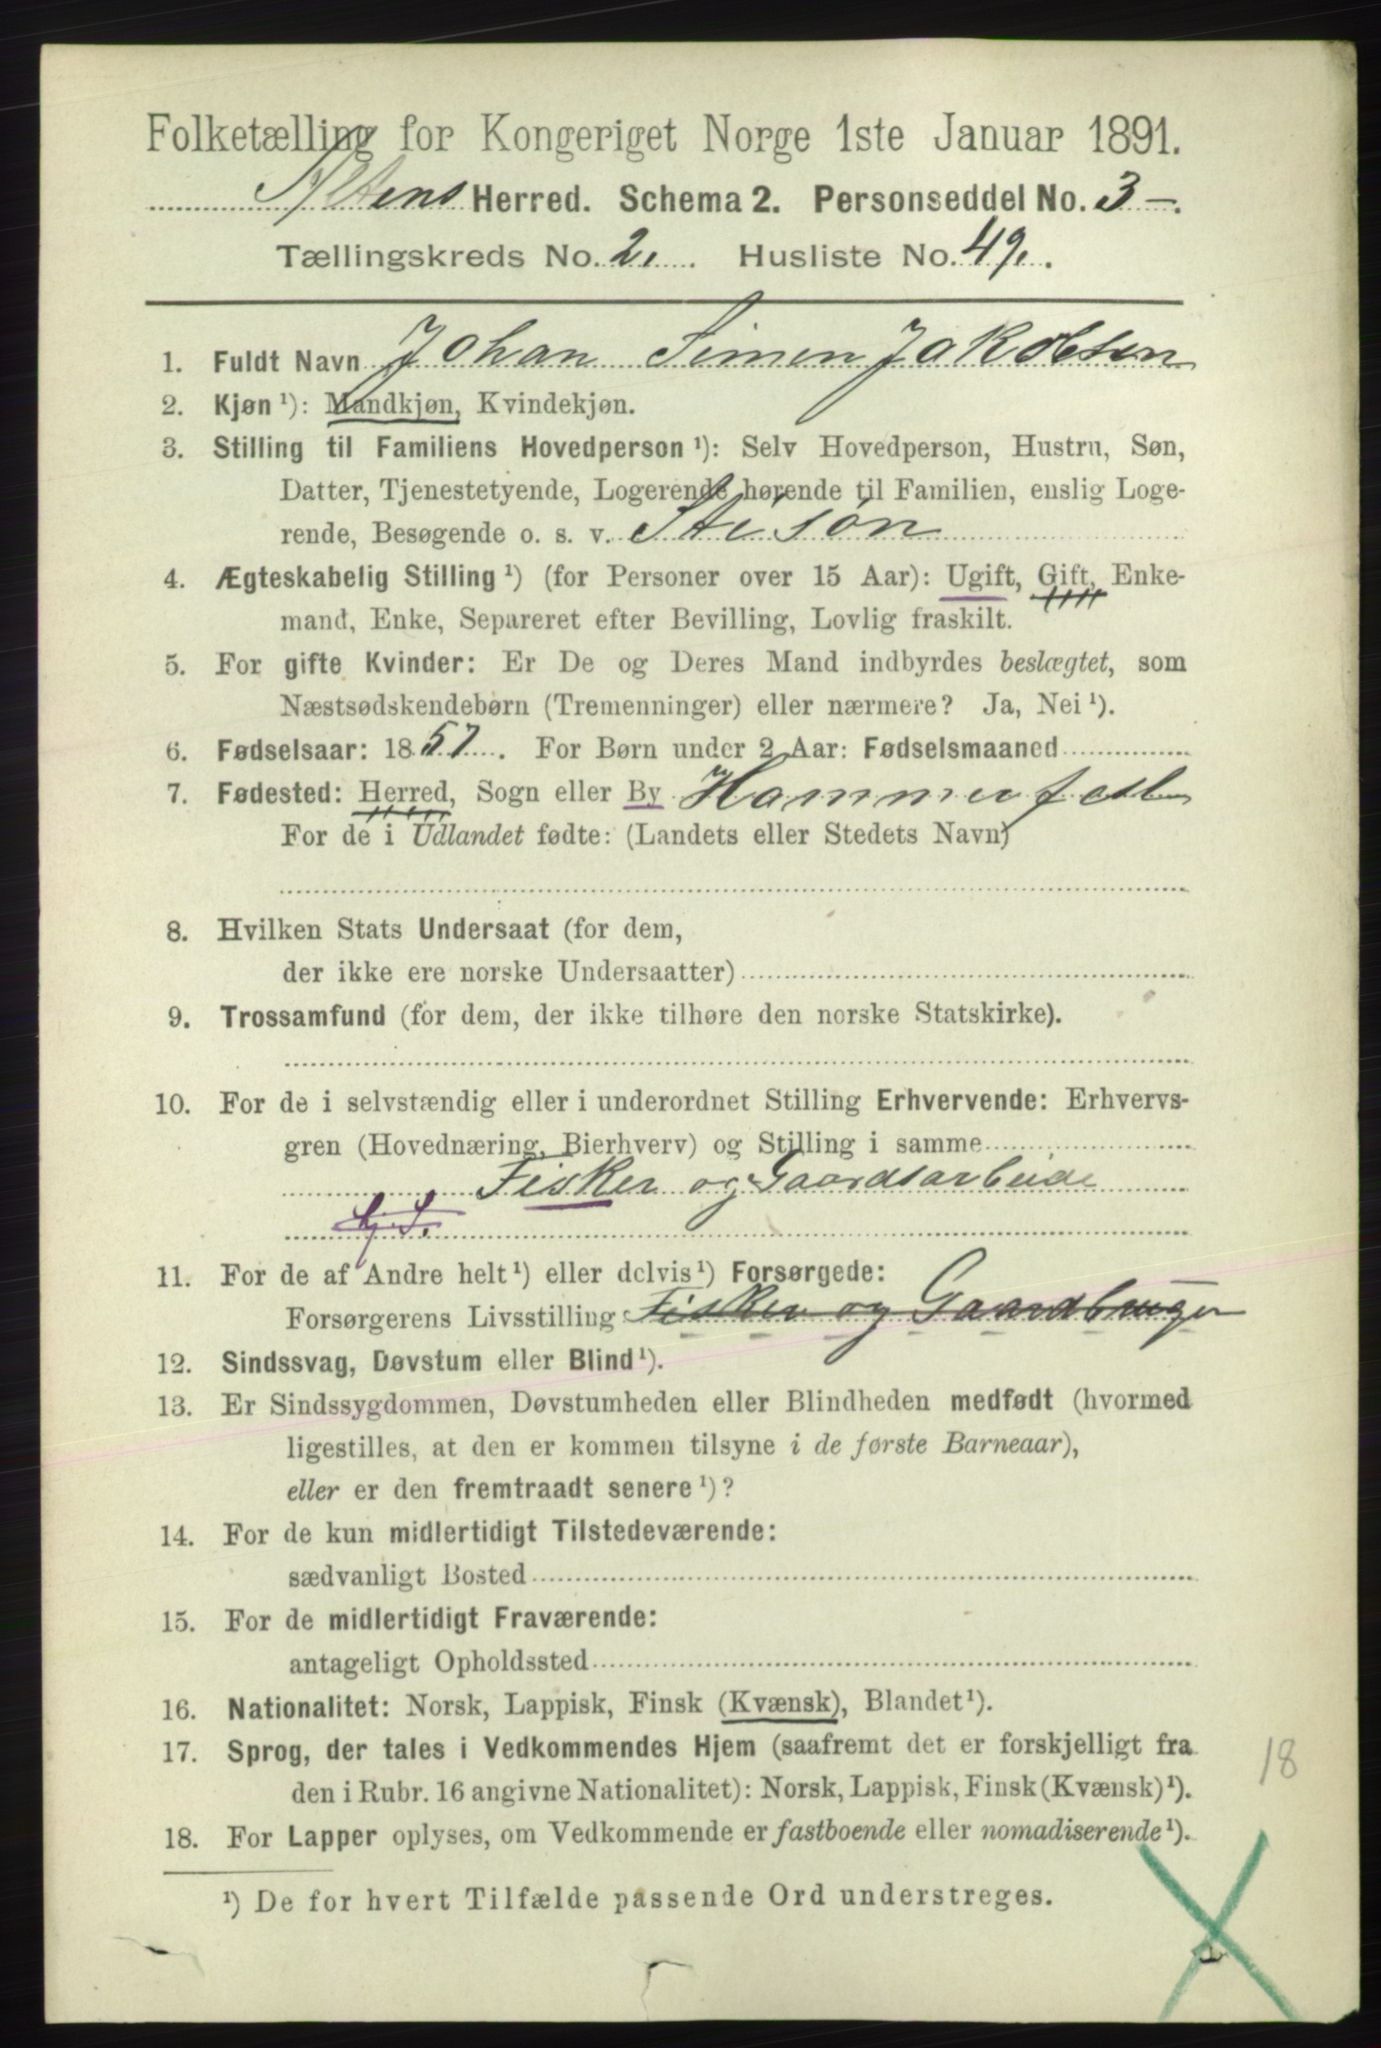 Folketælling for Kongeriget Norge 1ste Januar 1891.
Altens Herred. Schema 2. Personseddel No. 3 -.
Tællingskreds No. 2. Husliste No. 49.
1. Fuldt Navn Johan Simen Jakobsen
2. Kjøn ¹): Mandkjøn, Kvindekjøn.
3. Stilling til Familiens Hovedperson ¹): Selv Hovedperson, Hustru, Søn,
Datter, Tjenestetyende, Logerende hørende til Familien, enslig Loge-
rende, Besøgende o. s. v. Stisøn
4. Ægteskabelig Stilling ¹) (for Personer over 15 Aar): Ugift, Gift, Enke-
mand, Enke, Separeret efter Bevilling, Lovlig fraskilt.
5. For gifte Kvinder: Er De og Deres Mand indbyrdes beslægtet, som
Næstsødskendebørn (Tremenninger) eller nærmere? Ja, Nei ¹).
6. Fødselsaar: 1857. For Børn under 2 Aar: Fødselsmaaned
7. Fødested: Herred, Sogn eller By Hammerfest
For de i Udlandet fødte: (Landets eller Stedets Navn)
8. Hvilken Stats Undersaat (for dem,
der ikke ere norske Undersaatter)
9. Trossamfund (for dem, der ikke tilhøre den norske Statskirke).
10. For de i selvstændig eller i underordnet Stilling Erhvervende: Erhvervs-
gren (Hovednæring, Bierhverv) og Stilling i samme
Fisker og Gaardsarbeide
11. For de af Andre helt ¹) eller delvis ¹) Forsørgede:
Forsørgerens Livsstilling Fisker og Gaardbruger
12. Sindssvag, Døvstum eller Blind ¹).
13. Er Sindssygdommen, Døvstumheden eller Blindheden medfødt (hvormed
ligestilles, at den er kommen tilsyne i de første Barneaar),
eller er den fremtraadt senere ¹)?
14. For de kun midlertidigt Tilstedeværende:
sædvanligt Bosted
15. For de midlertidigt Fraværende:
antageligt Opholdssted
16. Nationalitet: Norsk, Lappisk, Finsk (Kvænsk), Blandet ¹).
17. Sprog, der tales i Vedkommendes Hjem (saafremt det er forskjelligt fra
den i Rubr. 16 angivne Nationalitet): Norsk, Lappisk, Finsk (Kvænsk) ¹).
18
18. For Lapper oplyses, om Vedkommende er fastboende eller nomadiserende ¹).
¹) De for hvert Tilfælde passende Ord understreges.